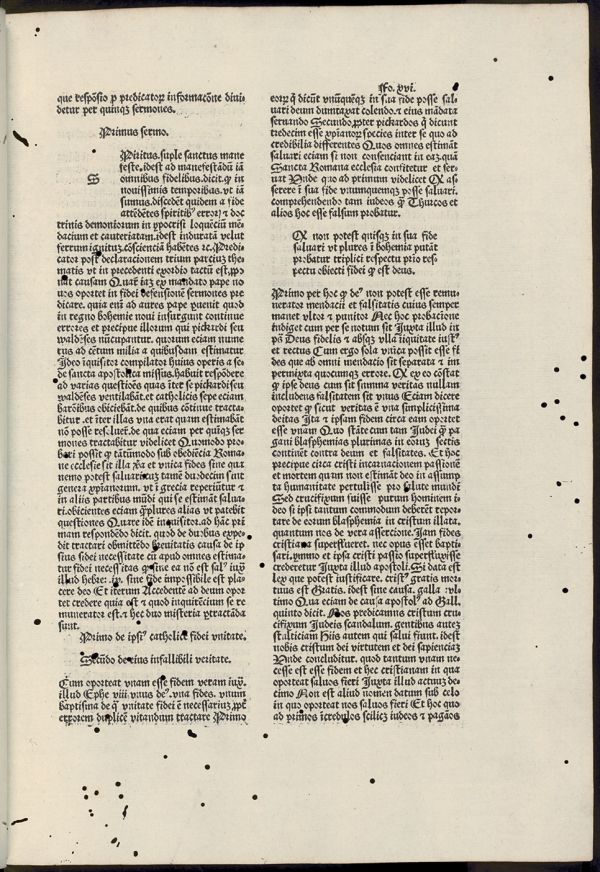 que respōsio p̄ predicatoꝝ informacōne diui-
detur per quinqꝫ sermones.
Primus sermo.
S
Piritus.suple sanctus mane
feste.idest ad manifestādū iā
omnibus fidelibus.dicit.ꝙ in
nouissimis temporibus.vt iā
sumus.discedēt quidem a fide
attēdētes spiritibꝰ erroꝝ ⁊ doc
trinis demoniorum in ypocrisi loquēciū mē-
dacium et cauteriatam.idest induratā velut
ferrum ignitū.cōscienciā habētes ⁊c. Predi-
cator post declaracionem trium parciū the-
matis vt in precedenti exordio tactū est.ꝓpo
nat causam Quare iaꝫ ex mandato pape no
uos oportet in fidei defensione sermones pre
dicare. quia eni ad aures pape puenit quod
in regno bohemie noui insurgunt continue
errores et precipue illorum qui pickardi seu
waldēses nūcupantur. quorum eciam nume
rus ad cētum milia a quibusdam estimatur
Ideo iquisitor compilator huius operis a se-
de sancta apostolica missus.habuit respōdere
ad varias questiōes quas iter se pickardi seu
waldēses ventilabāt.et catholicis sepe eciam
baronibus obiciebāt.de quibus cōtinue tracta-
bitur.et iter illas vna erat quam estimabāt
nō posse resoluere.de qua eciam per quīqꝫ ser
mones tractabitur videlicet Quomodo pro-
bari possit ꝙ tantūmodo sub obediēcia Roma-
ne ecclesie sit illa vera et vnica fides sine qua
nemo potest saluari.cuꝫ tamē duodecim sint
genera xp̄ianorum. vt i grecia reperiūtur ⁊
in aliis partibus mūdi qui se estimāt salua-
ri.obicientes eciam ꝙplures alias vt patebit
questiones Quare idē inquisitor.ad hāc pri
mam respondēdo dicit. quod de duobus expe-
dit tractari obmittēdo breuitatis causa de ip
sius fidei necessitate cū apud omnes estima-
tur fidei necessitas ꝙ sine ea nō est salꝰ iuxꝭ
illud hebre. .ix. sine fide impossibile est pla-
cere deo Et iterum Accedentē ad deum opor
tet credere quia est ⁊ quod inquirēcium se re
munerator est.⁊ hec duo misteria ꝑtractāda
sunt.
Primo de ipsiꝰ catholice fidei vnitate.
Secūdo de eius infallibili veritate.
Cum oporteat vnam esse fidem veram iuxꝭ.
illud Ephe viii. vnus deꝰ. vna fides. vnum
baptisma de ꝙ vnitate fidei ē necessariuꝫ ꝓpter
errorem duplicē vitandum tractare Primo
Fo. xvi.
eorꝝ ꝗ dicūt vnūquēqꝫ in sua fide posse sal-
uari deum dumtaxat colendo.⁊ eius mādata
seruando Secundo.ꝓpter pickardos ꝗ dicunt
tredecim esse xp̄ianoꝝ species inter se quo ad
credibilia differentes Quos omnes estimāt
saluari eciam si non consenciant in ea.quā
Sancta Romana ecclesia confitetur et ser-
uat Vnde quo ad primum videlicet Qꝫ as-
serere i sua fide vnumquemqꝫ posse saluari.
comprehendendo tam iudeos ꝙ Thurcos et
alios hoc esse falsum probatur.
Qꝫ non potest quisqꝫ in sua fide
saluari vt plures i bohemia putāt
probatur triplici respectu prio res-
pectu obiecti fidei ꝙ est deus.
Primo per hoc ꝙ deꝰ non potest esse remu-
nerator mendacii et falsitatis cuius semper
manet vltor ⁊ punitor Nec hoc probacione
indiget cum per se notum sit Juxta illud in
pś Deus fidelis ⁊ absqꝫ vlla iiquitate iustꝰ
et rectus Cum ergo sola vnica possit esse fi
des que ab omni mendacio sit separata ⁊ in
permixta quocunqꝫ errore. Qꝫ ex eo cōstat
ꝙ ipse deus cum sit summa veritas nullam
includens falsitatem sit vnus Eciam dicere
oportet ꝙ sicut veritas ē vna simplicissima
deitas Ita ⁊ ipsam fidem circa eam oportet
esse vnam Quo stāte cum tam Judei ꝙ pa
gani blasphemias plurimas in eoruꝫ sectis
continēt contra deum et falsitates. Et hoc
precipue circa cristi incarnacionem passionē
et mortem quam non estimāt deo in assump
ta humanitate pertulisse pro salute mundi
Sed crucifixum fuisse putum hominem i-
deo si ipsi tantum commodum deberet repor-
tare de eorum blasphemia in cristum illata.
quantum nos de vera assercione.Jam fides
cristiana superflueret. nec opus ēsset bapti-
sari.ymmo et ipsa cristi passio superfluxisse
crederetur Juxta illud apostoli.Si data est
lex que potest iustificare. cristꝰ gratis mor-
tuus est Gratis. idest sine causa. galla .vl-
timo Qua eciam de causa apostolꝰ ad Gall.
quinto dicit. Nos predicamus cristum cru-
cifixum Judeis scandalum. gentibus autez
stulticiam Hiis autem qui salui fiunt. idest
nobis cristum dei virtutem et dei sapienciaꝫ
Vnde concluditur. quod tantum vnam ne-
cesse est esse fidem et hoc cristianam in qua
oporteat saluos fieri Juxta illud actuuꝫ de-
cimo Non est aliud nomen datum sub celo
in quo oporteat nos saluos fieri Et hoc quo
ad primos icredulos scilicꝫ iudeos ⁊ pagāos